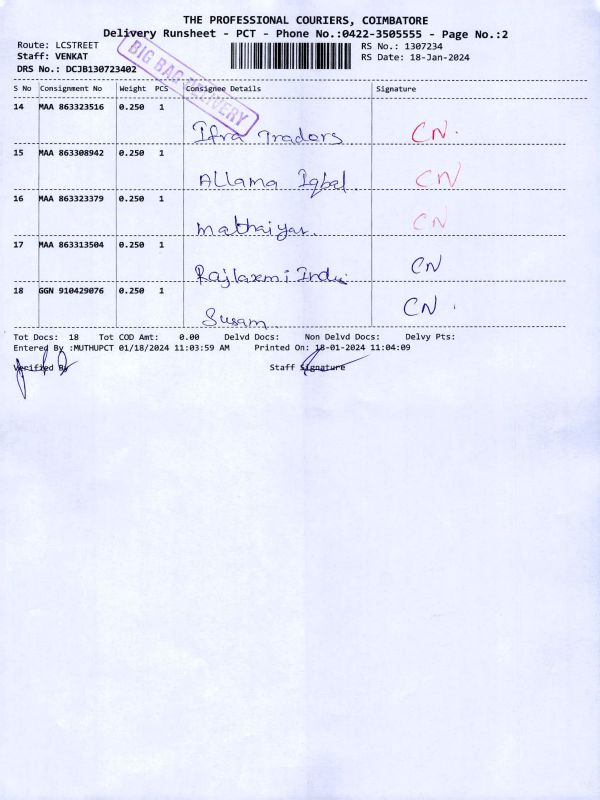 THE PROFESSIONAL COURIERS, COIMBATORE
Delivery Runsheet - PCT - Phone No.:0422-3505555 - Page No.:2
Route: LCSTREET RS No.: 1307234
Staff: VENKAT RS Date: 18-Jan-2024
DRS No.: DCJB130723402
BIG BAG DELIVERY
S No Consignment No Weight PCS Consignee Details Signature
14 MAA 863323516 0.250 1
Ifra Tradors CN.
15 MAA 863308942 0.250 1
Allama Iqbal. CN
16 MAA 863323379 0.250 1
Mathaiyas. CN
17 MAA 863313504 0.250 1
Rajlaxmi Indu CN
18 GGN 910429076 0.250 1
Susam CN .
Tot Docs: 18 Tot COD Amt: 0.00 Delvd Docs: Non Delvd Docs: Delvy Pts:
Entered By :MUTHUPCT 01/18/2024 11:03:59 AM Printed On: 18-01-2024 11:04:09
Verified By Staff Signature